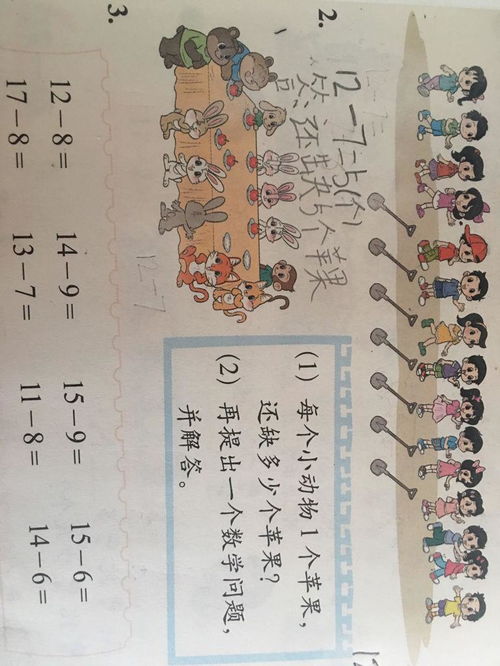 2.
12-7=5(个)
答:还缺5个苹果
(1) 每个小动物1个苹果,
还缺多少个苹果?
(2) 再提出一个数学问题,
并解答。
12-7
3.
12－8= 14－9= 15－9= 15－6=
17－8= 13－7= 11－8= 14－6=